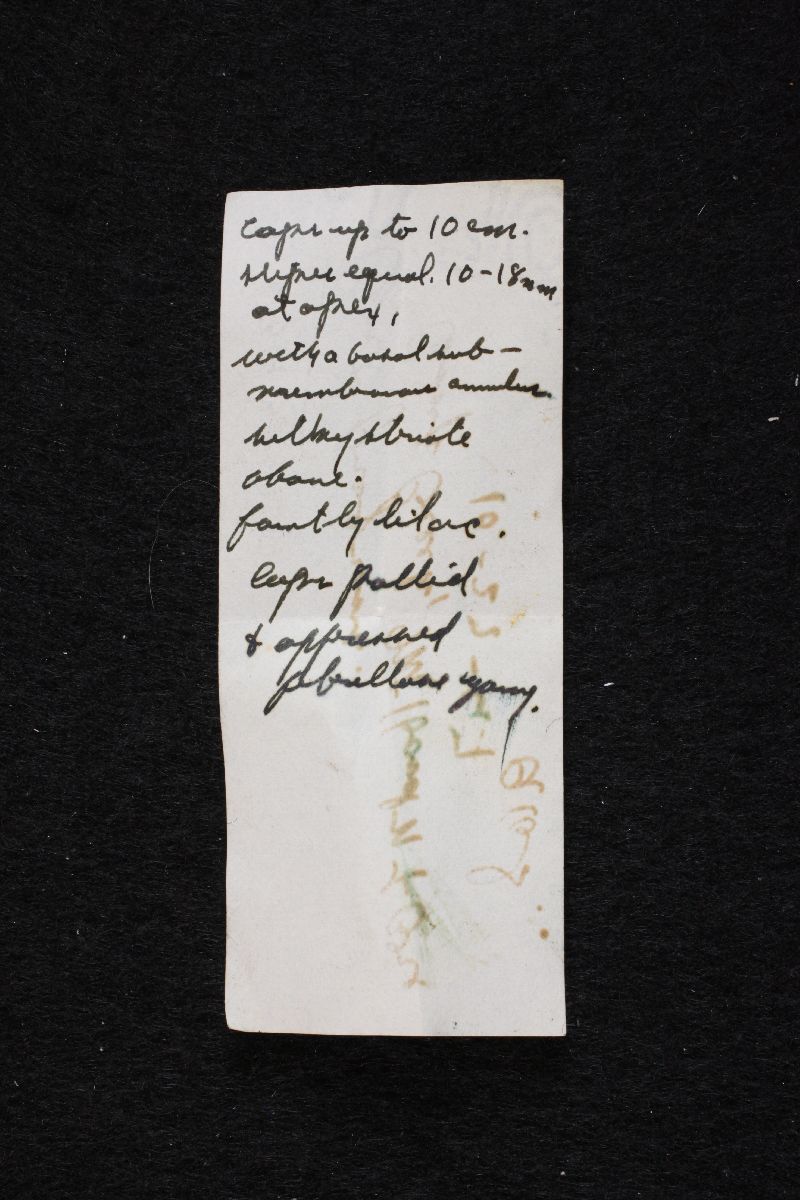 Caps up to 10 cm.
stipes equal. 10-18mm
at apex,
with a basal sub-
membranous annulus.
silky striate
above.
faintly lilac.
Caps pallid
& appressed
fibrillose